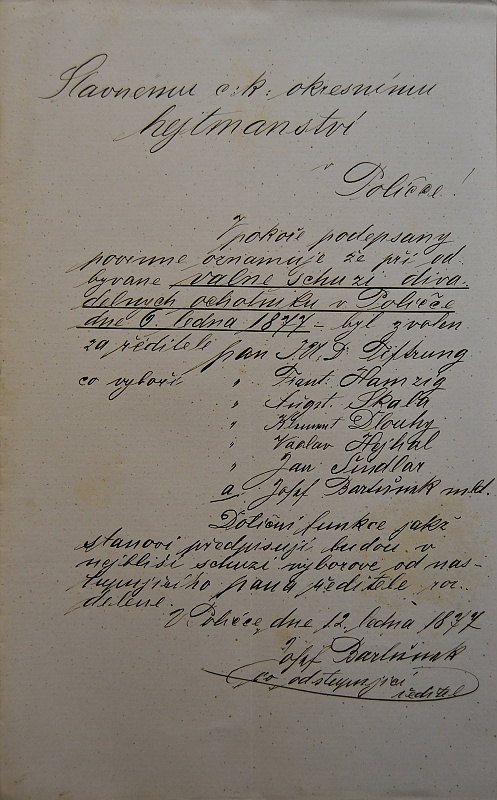 Slavnemu c: k: okresnímu
hejtmanství
v Poličce!
V pokoře podepsany
povinně oznamuje že při od-
byvane valne schuzi diva-
delnych ochotniku v Poličce
dne 6. ledna 1877 – byl zvolen
za ředitele pan J. U. D. Diftrung
co vyboři " Frant. Hamzig
" August. Skala
" Klement Dlouhy
" Vaclav Hejkal
" Jan Šindlar
a Josef Bartůnek mkl.
Dotični funkce jakž
stanovi předpisují budou v
nejbližsi schuzi vyborove od nas-
tupujiciho pana ředitele roz-
dělené.
V Poličce, dne 12. ledna 1877
Josef Bartůnek
co odstupující
ředitel